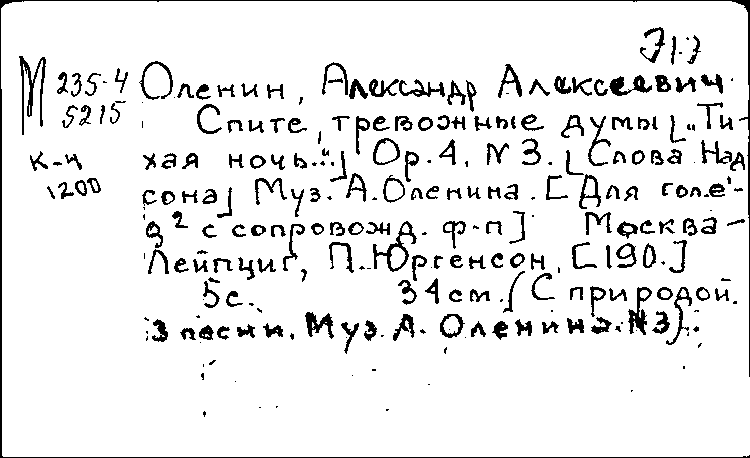 М 235-4 Оленин, Александр Алексеевич.
5215 Спите, тревожные думы [„Ти-
К-ч хая ночь...“] Op. 4, N 3. [Слова Над
1200 сона] Муз. А. Оленина. [Для гол. e'-
g² с сопровожд. ф-п] Москва-
Лейпциг, П. Юргенсон, [190.]
5 с. 34 см. (С природой.
3 песни. Муз. А. Оленина. N3).